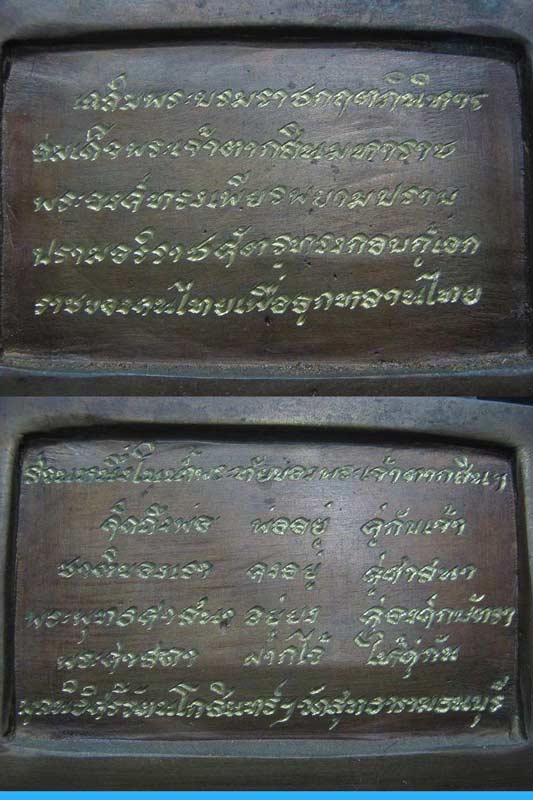 พระบรมราชกฤตภินิหาร
สมเด็จพระเจ้าตากสินมหาราช
พระองค์ทรงเพียรพยามปราบ
ปรามอริราชศัตรูทรงกอบกู้เอก
ราชของคนไทยเพื่อลูกหลานไทย
ส่วนหนึ่งในน้ำพระทัยของพระเจ้าตากสินฯ
คิดถึงพ่อ พ่ออยู่ คู่กับเจ้า
ชาติของเรา คงอยู่ คู่ศาสนา
พระพุทธศาสนา อยู่ยง คู่องค์กษัตรา
พระศาสดา ฝากไว้ ให้คู่กัน
โกสินทร์ฯ วัดสุทธารามธนบุรี